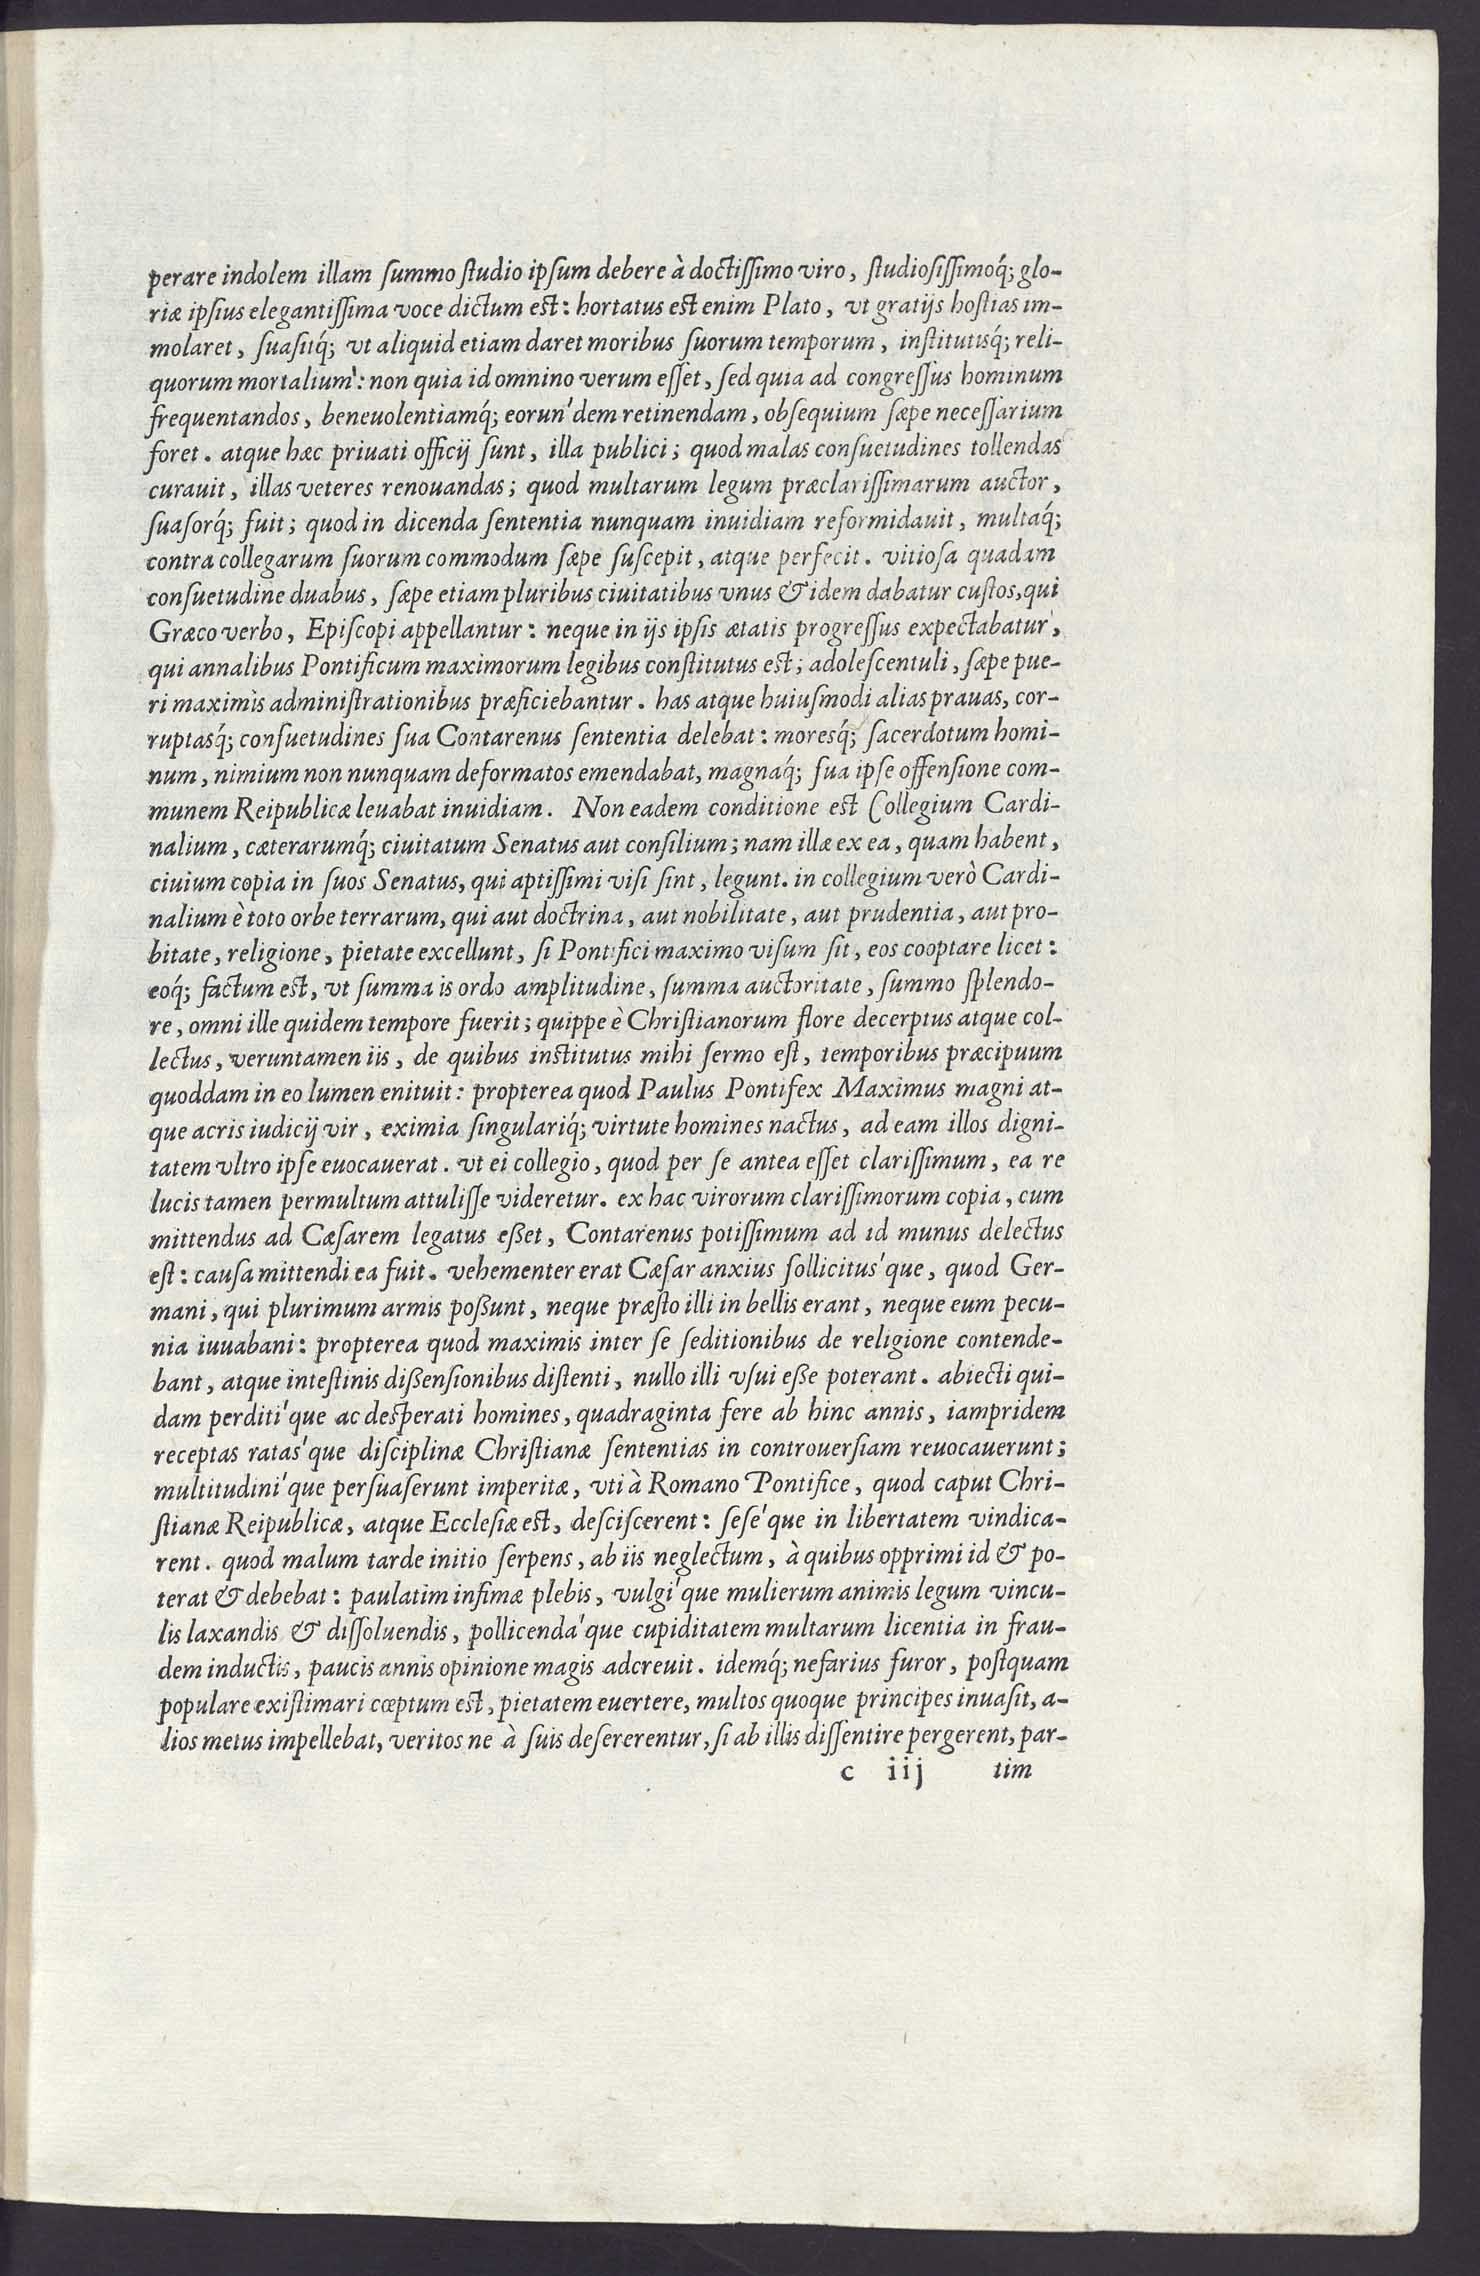 perare indolem illam ſummo ſtudio ipſum debere à doctiſſimo viro, ſtudioſiſſimoq́; glo-
riæ ipſius elegantiſſima voce dictum est: hortatus est enim Plato, vt gratijs hoſtias im-
molaret, ſuaſitq́; vt aliquid etiam daret moribus ſuorum temporum, inſtitutisq́; reli-
quorum mortalium': non quia id omnino verum eſſet, ſed quia ad congreſſus hominum
frequentandos, beneuolentiamq́; eorun'dem retinendam, obſequium ſæpe neceſſarium
foret. atque hæc priuati officij ſunt, illa publici; quod malas conſuetudines tollendas
curauit, illas veteres renouandas; quod multarum legum præclariſſimarum auctor,
ſuaſorq́; fuit; quod in dicenda ſententia nunquam inuidiam reformidauit, multaq́;
contra collegarum ſuorum commodum ſæpe ſuſcepit, atque perfecit. vitioſa quadam
conſuetudine duabus, ſæpe etiam pluribus ciuitatibus vnus & idem dabatur cuſtos, qui
Græco verbo, Epiſcopi appellantur: neque in ijs ipſis ætatis progreſſus expectabatur,
qui annalibus Pontificum maximorum legibus conſtitutus est; adoleſcentuli, ſæpe pue-
ri maximis adminiſtrationibus præficiebantur. has atque huiuſmodi alias prauas, cor-
ruptasq́; conſuetudines ſua Contarenus ſententia delebat: moresq́; ſacerdotum homi-
num, nimium non nunquam deformatos emendabat, magnaq́; ſua ipſe offenſione com-
munem Reipublicæ leuabat inuidiam. Non eadem conditione est Collegium Cardi-
nalium, cæterarumq́; ciuitatum Senatus aut conſilium; nam illæ ex ea, quam habent,
ciuium copia in ſuos Senatus, qui aptiſſimi viſi ſint, legunt. in collegium verò Cardi-
nalium è toto orbe terrarum, qui aut doctrina, aut nobilitate, aut prudentia, aut pro-
bitate, religione, pietate excellunt, ſi Pontifici maximo viſum ſit, eos cooptare licet:
eoq́; factum est, vt ſumma is ordo amplitudine, ſumma auctoritate, ſummo ſplendo-
re, omni ille quidem tempore fuerit; quippe è Chriſtianorum flore decerptus atque col-
lectus, veruntamen iis, de quibus inſtitutus mihi ſermo eſt, temporibus præcipuum
quoddam in eo lumen enituit: propterea quod Paulus Pontifex Maximus magni at-
que acris iudicij vir, eximia ſingulariq́; virtute homines nactus, ad eam illos digni-
tatem vltro ipſe euocauerat. vt ei collegio, quod per ſe antea eſſet clariſſimum, ea re
lucis tamen permultum attuliſſe videretur. ex hac virorum clariſſimorum copia, cum
mittendus ad Cæſarem legatus eßet, Contarenus potiſſimum ad id munus delectus
eſt: cauſa mittendi ea fuit. vehementer erat Cæſar anxius ſollicitus'que, quod Ger-
mani, qui plurimum armis poßunt, neque præſto illi in bellis erant, neque eum pecu-
nia iuuabani: propterea quod maximis inter ſe ſeditionibus de religione contende-
bant, atque inteſtinis dißenſionibus diſtenti, nullo illi vſui eße poterant. abiecti qui-
dam perditi'que ac deſperati homines, quadraginta fere ab hinc annis, iampridem
receptas ratas'que diſciplinæ Chriſtianæ ſententias in controuerſiam reuocauerunt;
multitudini'que perſuaſerunt imperitæ, vti à Romano Pontifice, quod caput Chri-
ſtianæ Reipublicæ, atque Eccleſiæ est, deſciſcerent: ſeſe'que in libertatem vindica-
rent. quod malum tarde initio ſerpens, ab iis neglectum, à quibus opprimi id & po-
terat & debebat: paulatim infimæ plebis, vulgi'que mulierum animis legum vincu-
lis laxandis & diſſoluendis, pollicenda'que cupiditatem multarum licentia in frau-
dem inductis, paucis annis opinione magis adcreuit. idemq́; nefarius furor, poſtquam
populare exiſtimari cœptum est, pietatem euertere, multos quoque principes inuaſit, a-
lios metus impellebat, veritos ne à ſuis deſererentur, ſi ab illis diſſentire pergerent, par-
c iij tim